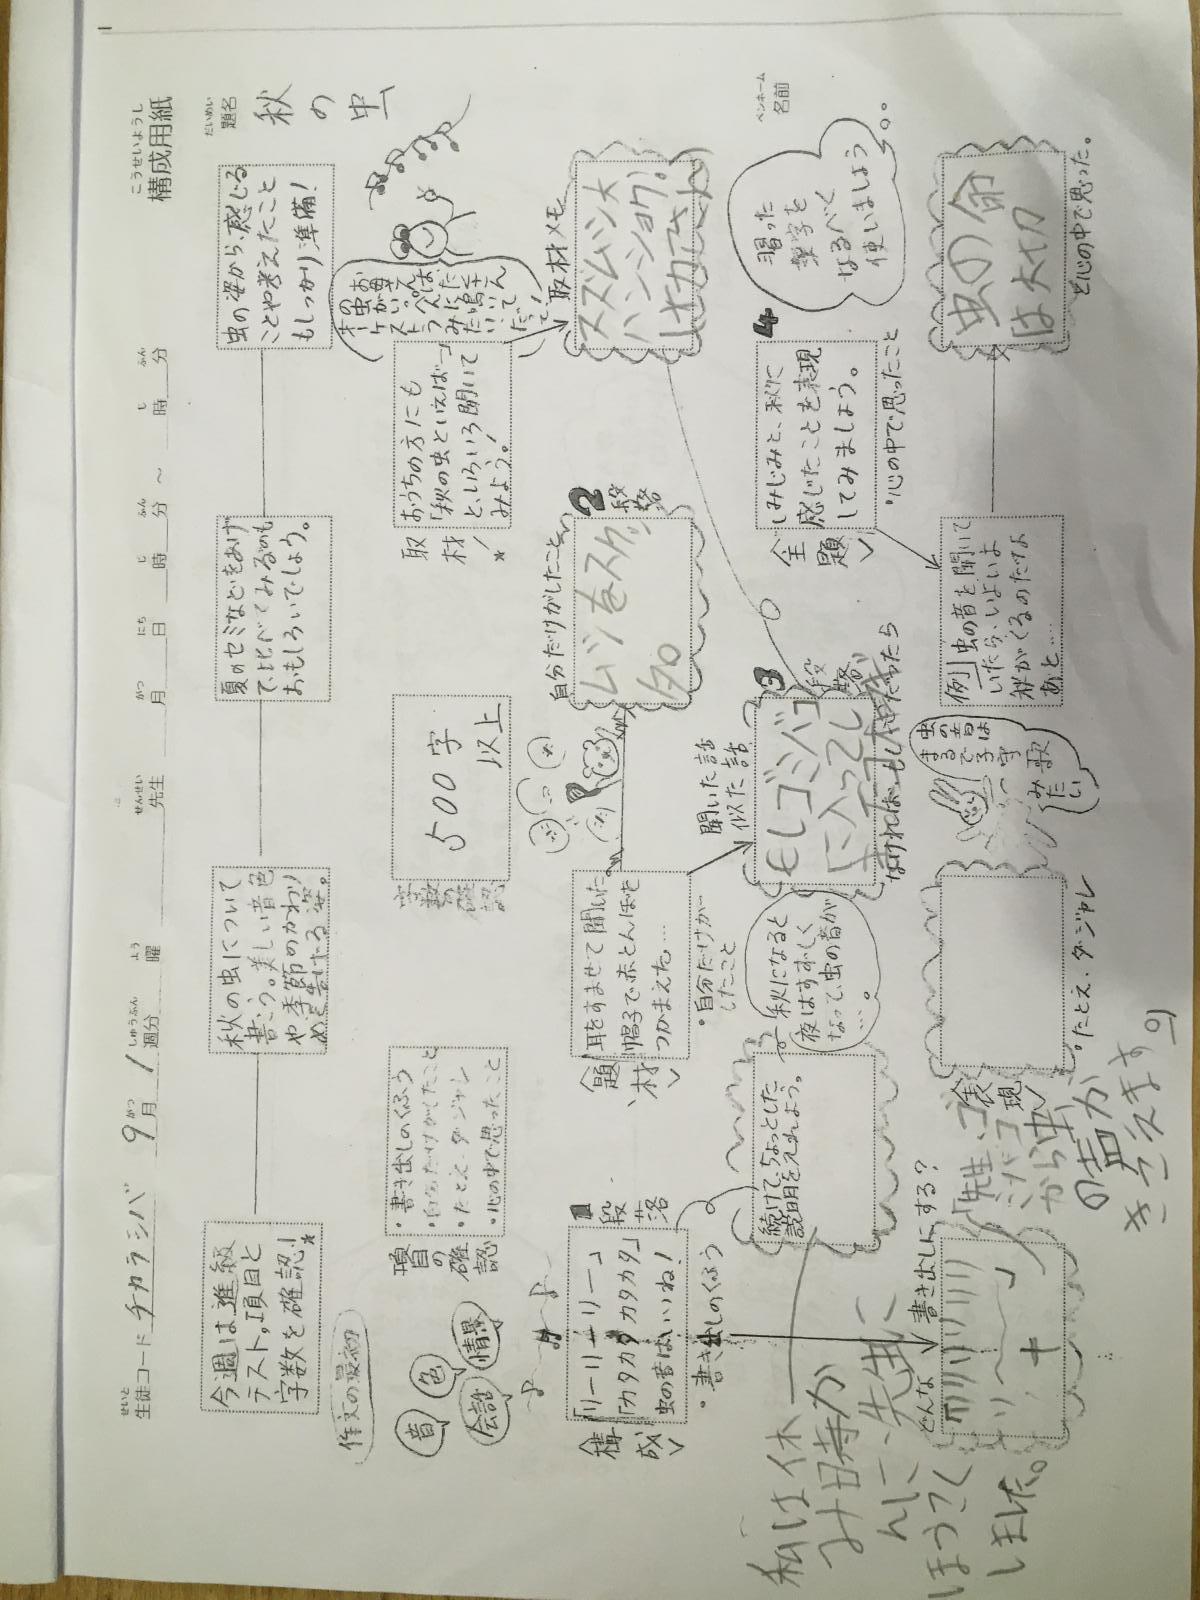 構成用紙
こうせいようし
生徒コード チカラシバ 9月 1週分 曜 先生 月 日 時 分 ～ 時 分
せいと がつ しゅうぶん よう せんせい がつ にち じ ふん じ ふん
題名
だいめい
秋の虫
今週は進級
テスト。項目と
字数を確認！
秋の虫について
書こう。美しい音色
や季節のかわり
めを告げる姿。
夏のセミなどをあげ
て、比べてみるのも
おもしろいでしょう。
虫の姿から、感じる
ことや考えたこと
もしっかり準備！
作文の最初
音
色
会話
情景
項目の確認
・書き出しのくふう
・自分だけがしたこと
・たとえ・ダジャレ
・心の中で思ったこと
字数の確認
500字
以上
取材！
おうちの方にも
「秋の虫といえば…」
と、いろいろ聞いて
みよう。！
取材メモ
スズムシ大
ハンショク！
＜構成＞
1段落
「リーリーリー」
「カタカタカタカタ」
虫の音はいいね！
・書き出しのくふう
＜題材＞
耳をすませて聞いた
帽子で赤とんぼを
つかまえた…
・自分だけが
したこと
自分だけがしたこと
2段落
続けて、ちょっとした
説明を入れよう。
秋になると
夜はすずしく
なって、虫の音が
…。
聞いた話
似た話
3段落
もしゴミバコ
に入ってし
なければ・もし～だったら
＜主題＞
しみじみと、秋に
感じたことも表現
してみましょう。
・心の中で思ったこと
4
習った
漢字を
なるべく
使いましょう
ペンネーム
名前
どんな書き出しにする？
「リリリリリリ
リ～～」
＋
「先生、ゴ
ミバコ
から虫
の音が
きこえます
私は休
み時か
んに、先生に
ほうこく
しました。
＜表現＞
・たとえ・ダジャレ
虫の音は
まるで子守
歌
みたい
例）虫の音を聞いて
いたら、いよいよ
秋がくるのだなあ
と…
虫の命
は大切
と心の中で思った。